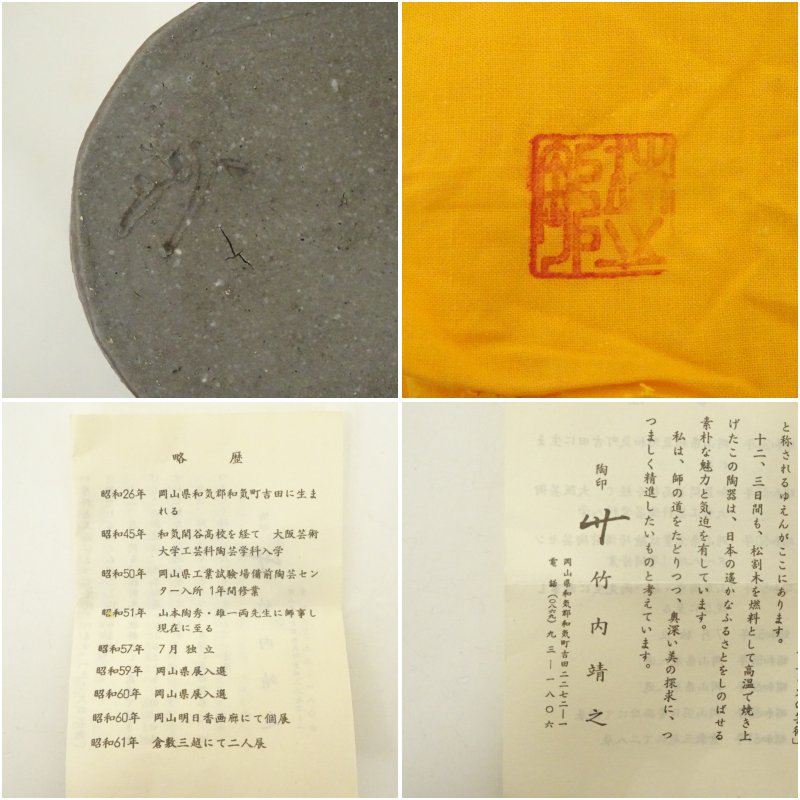 略歴
昭和26年 岡山県和気郡和気町吉田に生ま
れる
昭和45年 和気閑谷高校を経て 大阪芸術
大学工芸科陶芸学科入学
昭和50年 岡山県工業試験場備前陶芸セン
ター入所 1年間修業
昭和51年 山本陶秀・雄一両先生に師事し
現在に至る
昭和57年 7月 独立
昭和59年 岡山県展入選
昭和60年 岡山県展入選
昭和60年 岡山明日香画廊にて個展
昭和61年 倉敷三越にて二人展
と称されるゆえんがここにあります。
十二、三日間も、松割木を燃料として高温で焼き上
げたこの陶器は、日本の遥かなふるさとをしのばせる
素朴な魅力と気迫を有しています。
私は、師の道をたどりつつ、奥深い美の探求に、つ
つましく精進したいものと考えています。
陶印
竹内靖之
岡山県和気郡和気町吉田二二七二―一
電話(〇八六九)九三―一八〇六